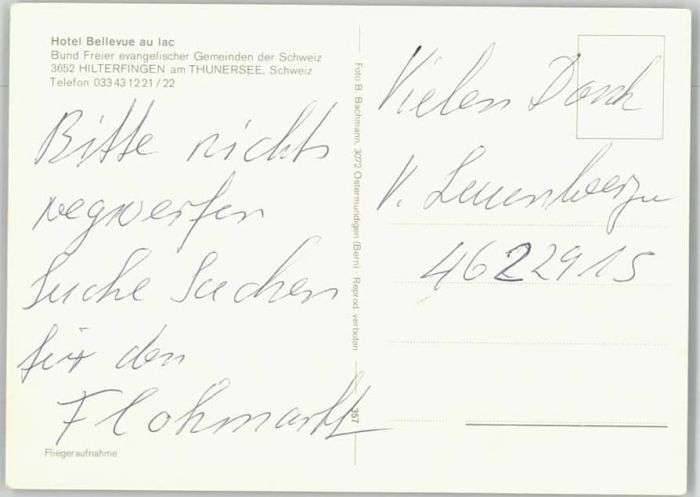 Hotel Bellevue au lac
Bund Freier evangelischer Gemeinden der Schweiz
3652 HILTERFINGEN am THUNERSEE, Schweiz
Telefon 033 43 12 21 / 22
Bitte nichts
wegwerfen
Suche Sachen
für den
Flohmarkt
Fliegeraufnahme
Foto B. Bachmann, 3072 Ostermundigen (Bern) Reprod. verboten
357
Vielen Dank
V. Leuenberger
4622915